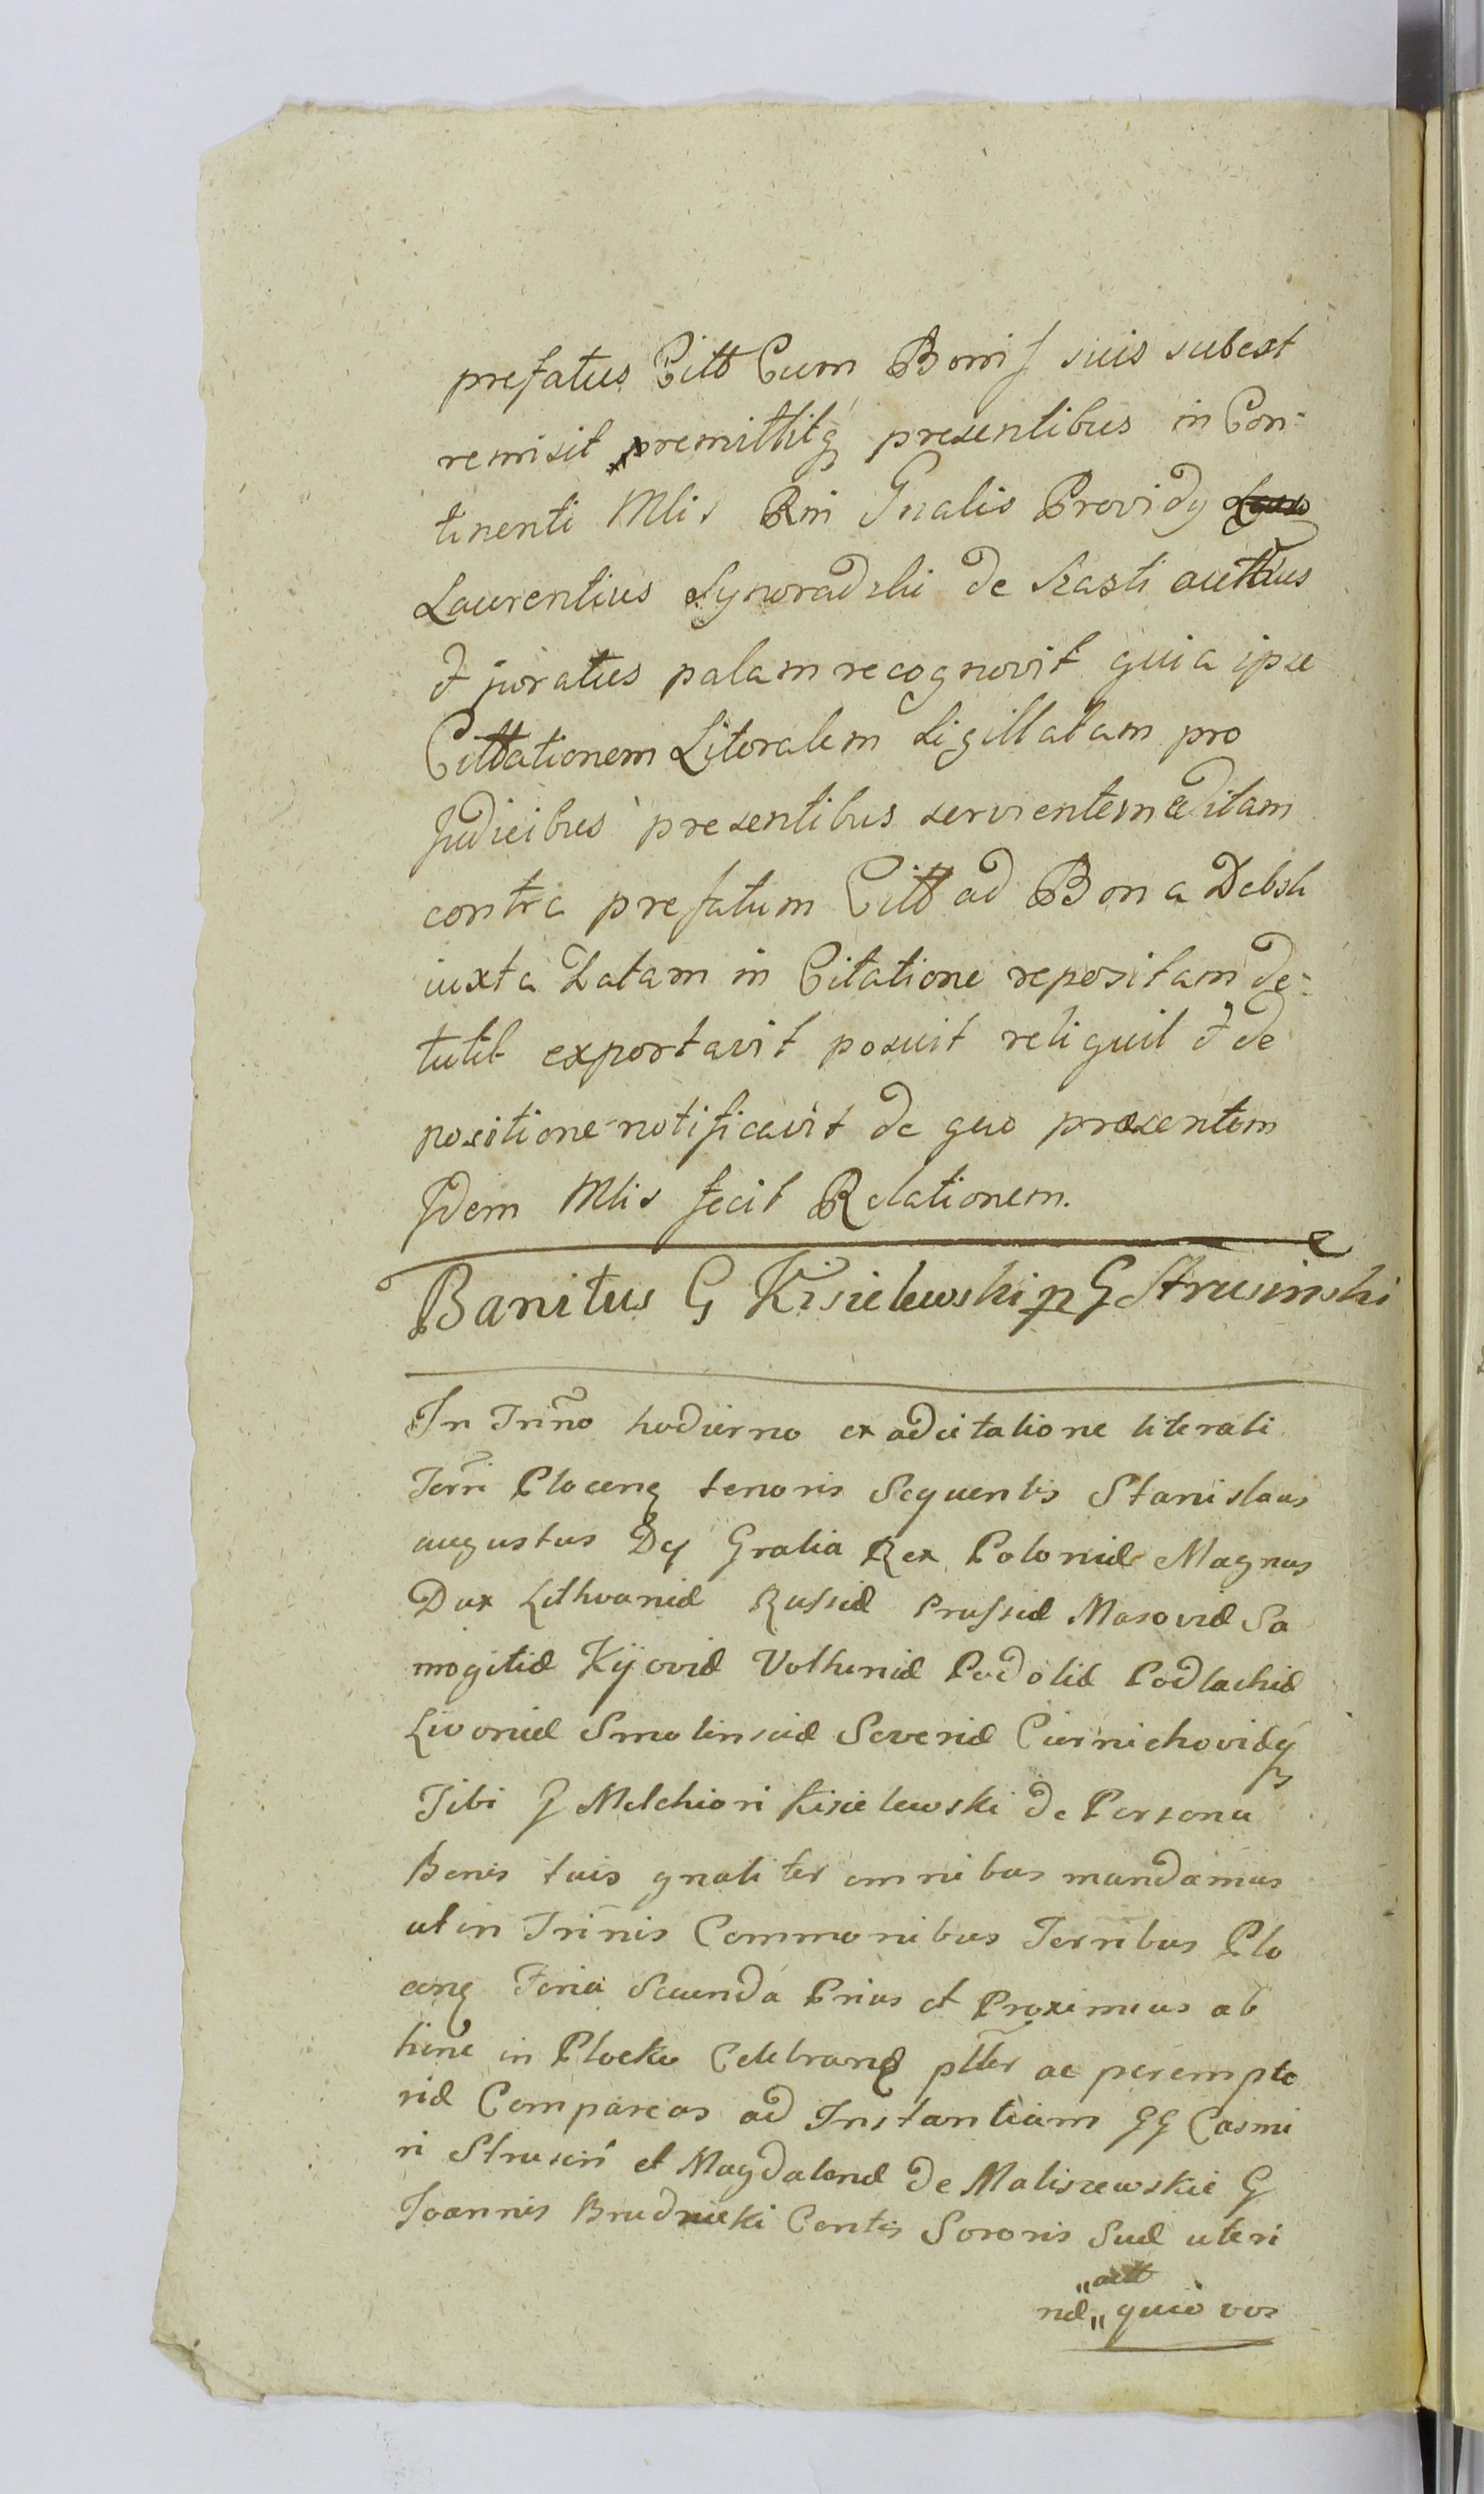 prefatus Citt Cum Bonis suis subest
remisit premittitq presentibus in Con:
tinenti Mlis Rni Gnalis Providy
Laurentius Synoradzki de Szasti autthus
et juratus palam recognovit quia ipse
Cittationem Literalem Sigillatam pro
Judicibus presentibus servientem editam
contra prefatum Citt ad Bona Debsk
iuxta Datam in Citatione repositam de:
tulit exportavit posuit reliquit et de
positione notificavit de quo presentem
Idem Mlis fecit Relationem.
Banitus G Kisielewski p G Strusinski
In Trino hodierno ex adcitatione literali
Terri Plocenq tenoris Sequentis Stanislaus
augustus Dey Gratia Rex Poloniæ Magnus
Dux Lithvaniæ Russiæ Prussiæ Masoviæ Sa
mogitiæ Kijoviæ Volhiniæ Podoliæ Podlachiæ
Livoniæ Smolensciæ Severiæ Ciernichoviæq
Tibi G Melchiori Kisielewski de Persona
Bonis tuis gnaliter omnibus mandamus
ut in Trinis Commonibus Terribus Plo
cenq Feria Secunda Prius et Proximius ab
hinc in Plocko Celebrand pltter ac perempto
riæ Compareas ad Instantiam GG Casmi
ri Strusin et Magdalenæ de Maliszewskie G
Joannis Brudnicki Contis Sororis Suæ uteri
"actt
næ " quia vos